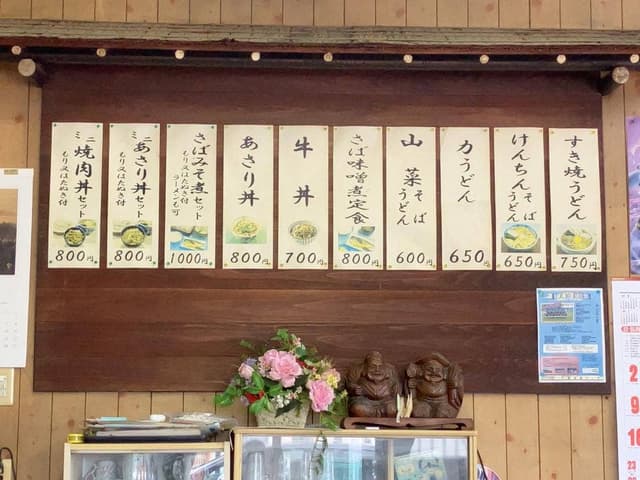 すき焼うどん
750円
けんちんそば
うどん
650円
力うどん
650円
山菜そば
うどん
600円
さば味噌煮定食
800円
牛丼
700円
あさり丼
800円
さばみそ煮セット
もり又はたぬき付
ラーメンも可
1000円
ミニあさり丼セット
もり又はたぬき付
800円
ミニ焼肉丼セット
もり又はたぬき付
800円
2
9
16
23